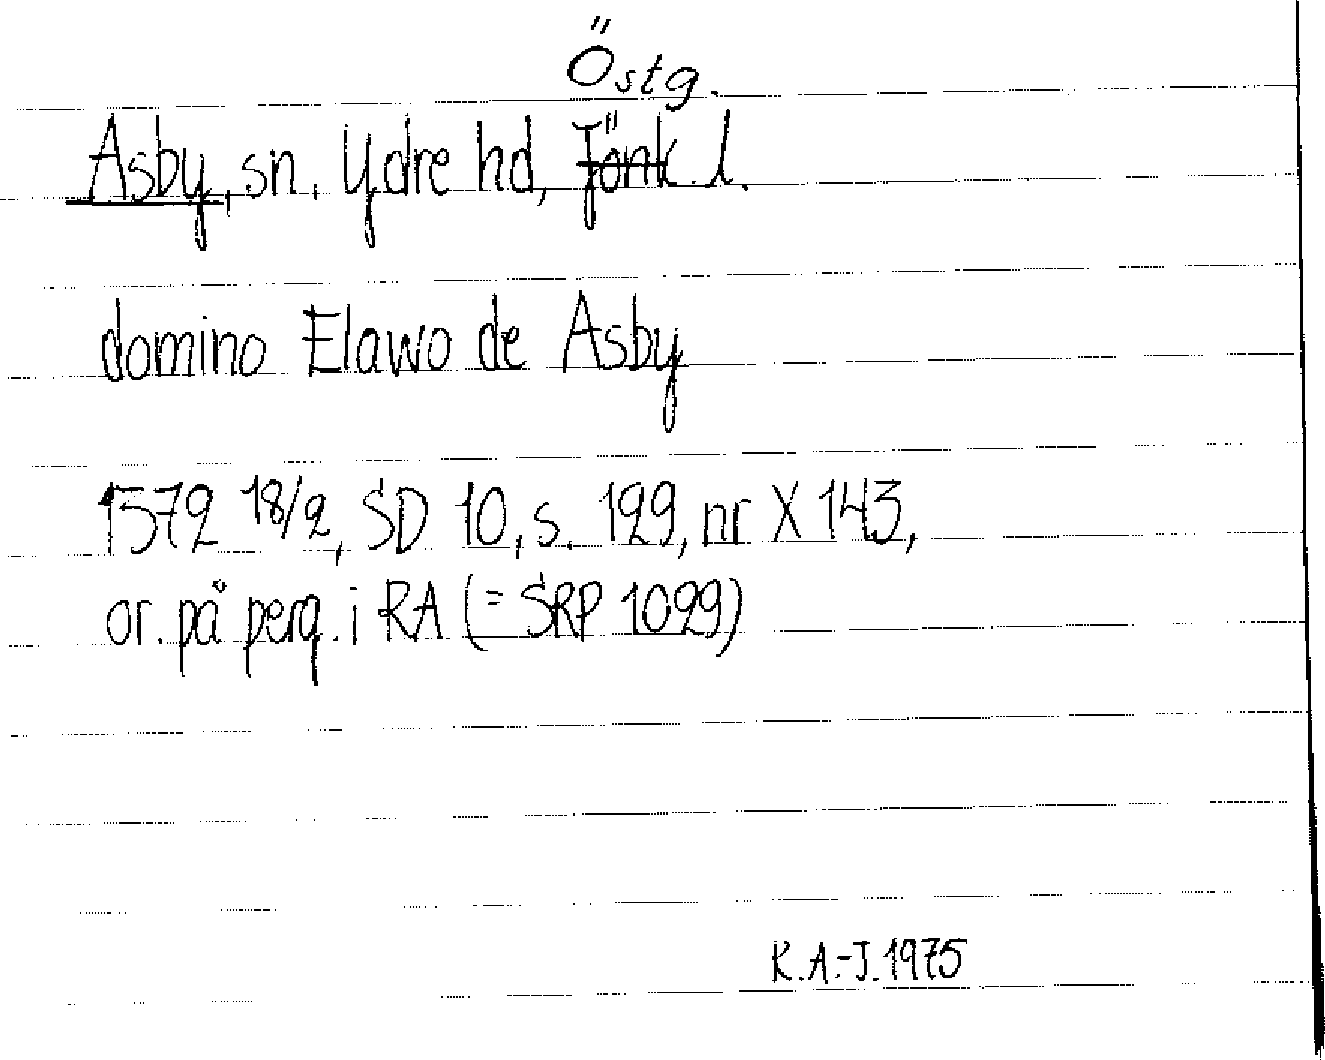 Östg.
Asby, sn, Ydre hd, Jönk. l.
domino Elawo de Asby
1372 18/2, SD 10, s. 129, nr X 143,
or. på perg. i RA (= SRP 1099)
K.A.-J. 1975